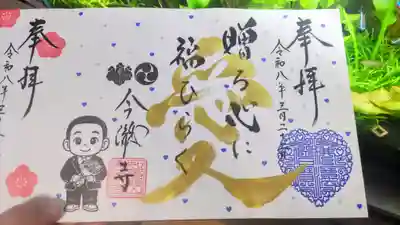 奉拝
令和八年三月二十
愛
贈る心に
福ひらく
今瀧寺
奉拝
令和八年